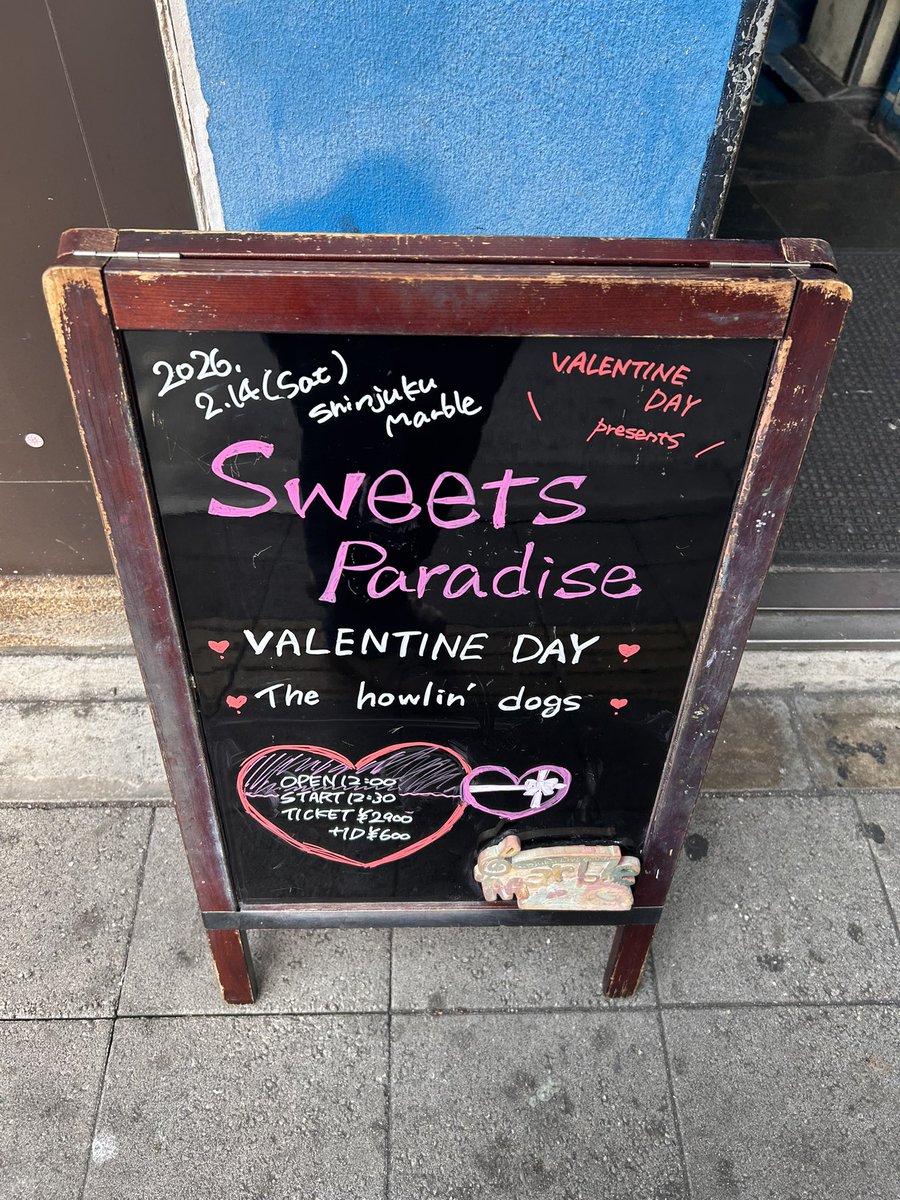 2026.
2.14(Sat)
Shinjuku
Marble
VALENTINE
DAY
presents
Sweets
Paradise
VALENTINE DAY
The howlin' dogs
OPEN 12:00
START 12:30
TICKET ¥2900
+1D ¥600
Marble